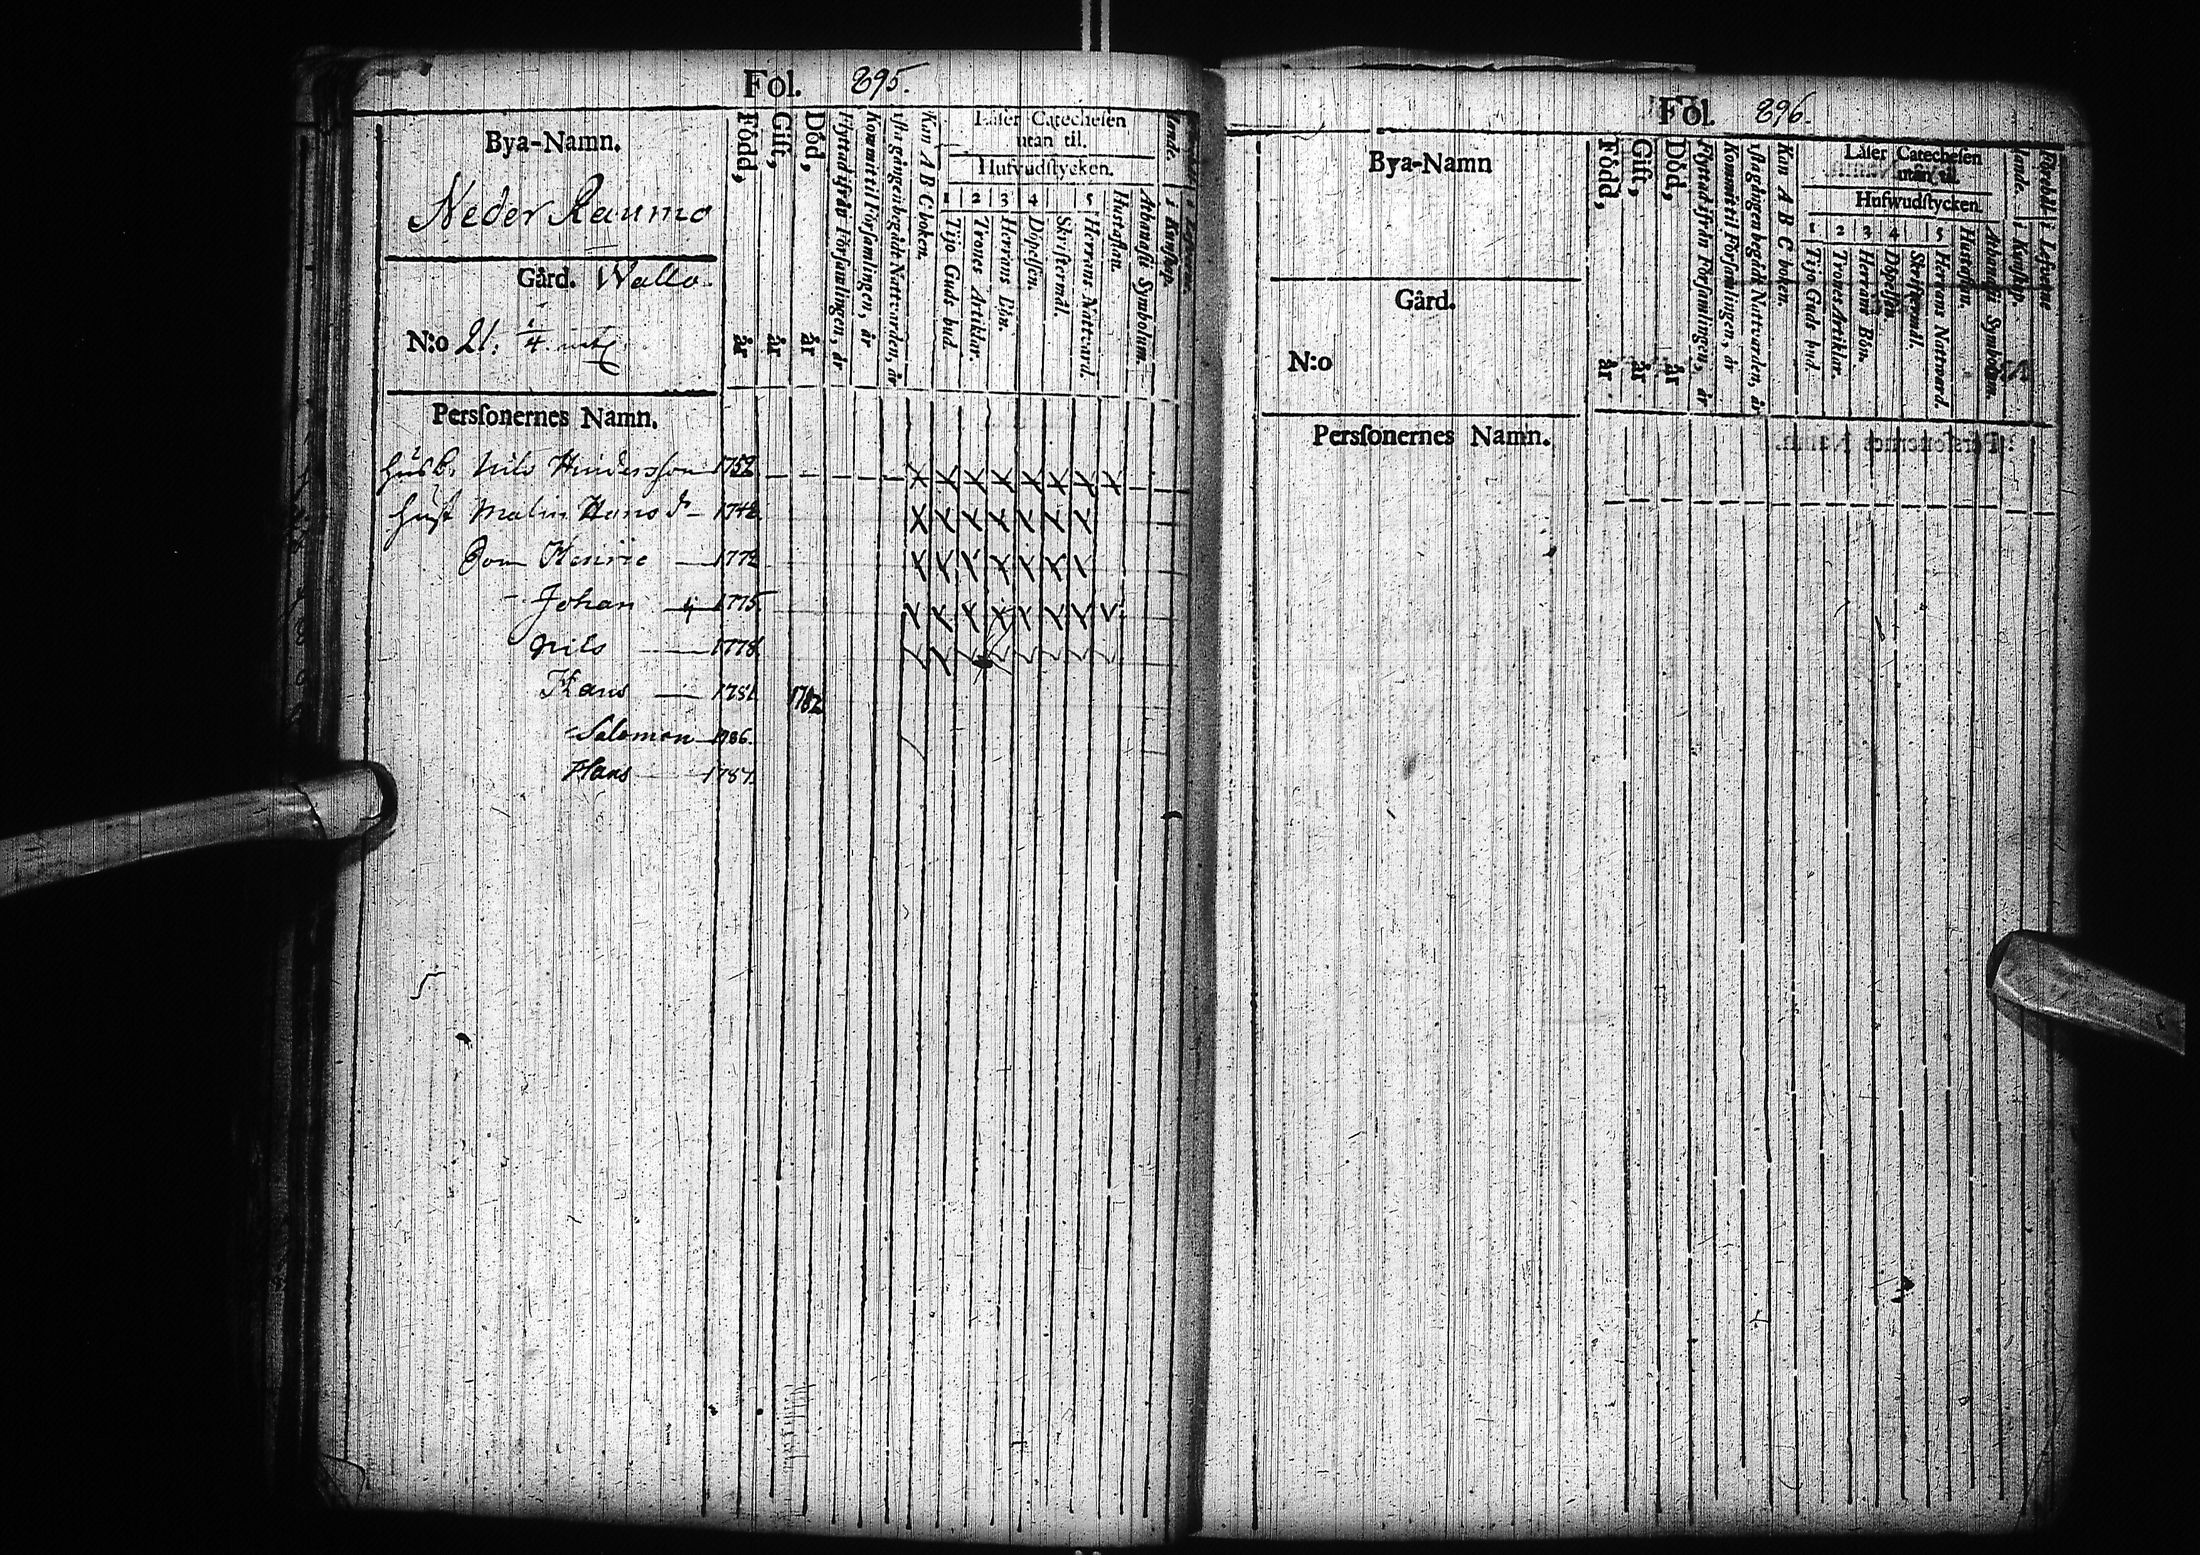 Fol. 295.
Bya-Namn.
Neder Raumo
Gård. Wallo.
N:o 21. 1/4
Född, år
Gift, år
Död, år
Flyttad ifrån Församlingen, år
Kommit til Församlingen, år
1sta gången begådt Nattvarden, år
Kan A B C boken.
Läser Catechesen
utan til.
Hufvudstycken.
1 Tijo Guds bud.
2 Trones Artiklar.
3 Herrans Bön.
4 Döpelsen.
Skriftermål.
5 Herrans Nattvard.
Hustaflan.
Athanasii Symbolum.
Perssonernes Namn.
Husb. Nils Hindersson 1752
Hust Malin Hansdr 1742
Son Henric 1772
Johan 1775
Nils 1778
Hans 1781 1782
Salomon 1786.
Hans 1787.
Fol. 296.
Bya-Namn
Gård.
N:o
Född, år
Gift, år
Död, år
Flyttad ifrån Församlingen, år
Kommit til Församlingen, år
1sta gången begådt Nattvarden, år
Kan A B C boken.
Läser Catechesen
utan til.
Hufwudstycken.
1 Tijo Guds bud.
2 Trones Artiklar.
3 Herrans Bön.
4 Döpelsen.
Skriftermål.
5 Herrans Nattward.
Hustaflan.
Athanasii Symbolum.
Perssonernes Namn.